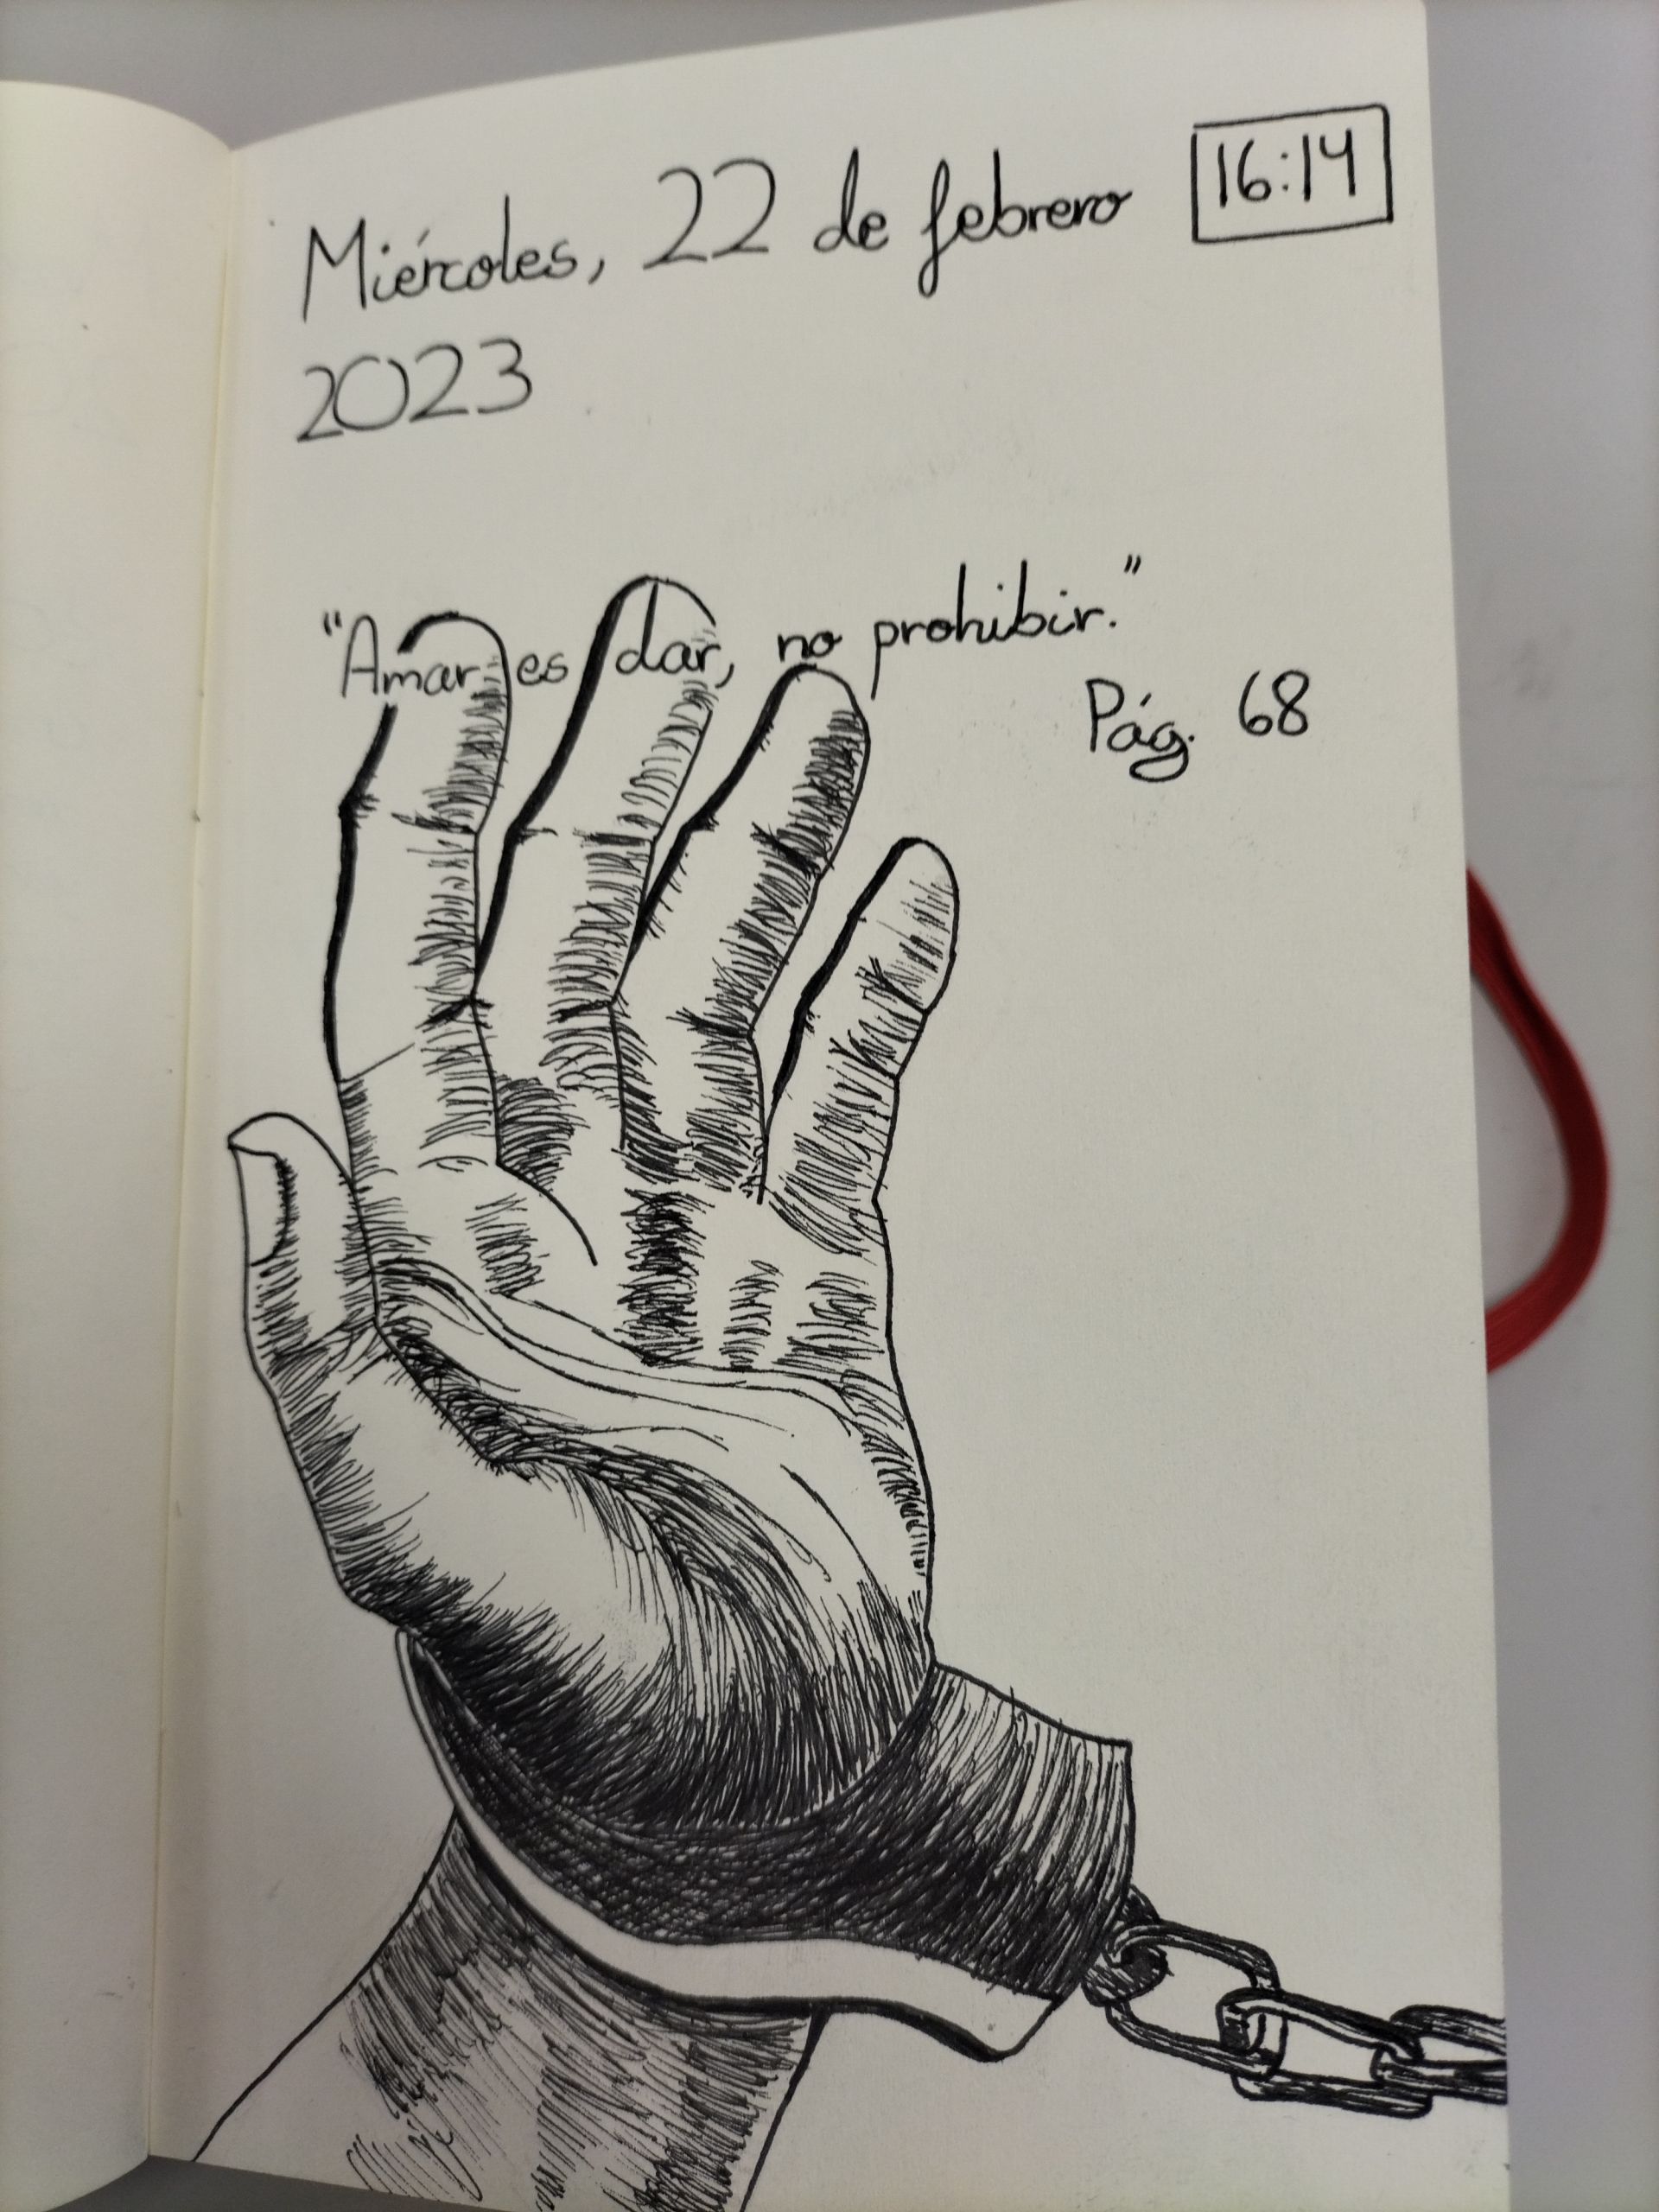 Miércoles, 22 de febrero
16:14
2023
"Amar es dar, no prohibir."
Pág. 68